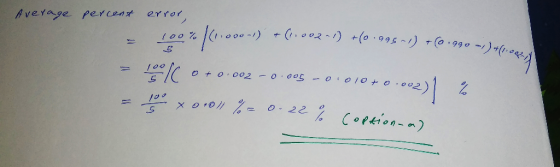 Average percent error,
= 100/5 % |(1.000-1) + (1.002-1) + (0.995-1) + (0.990-1) + (1.002-1)|
= 100/5 |( 0 + 0.002 - 0.005 - 0.010 + 0.002)| %
= 100/5 × 0.011 % = 0.22 % (option-a)